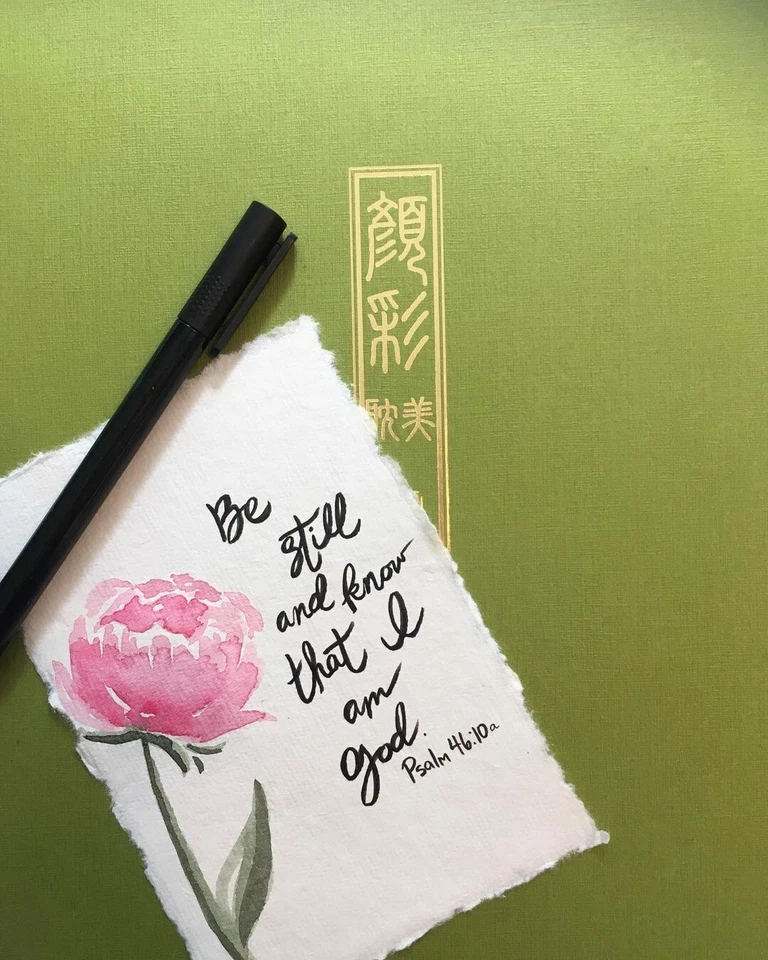 顔
彩
耽美
Be
still
and know
that I
am
God.
Psalm 46:10a